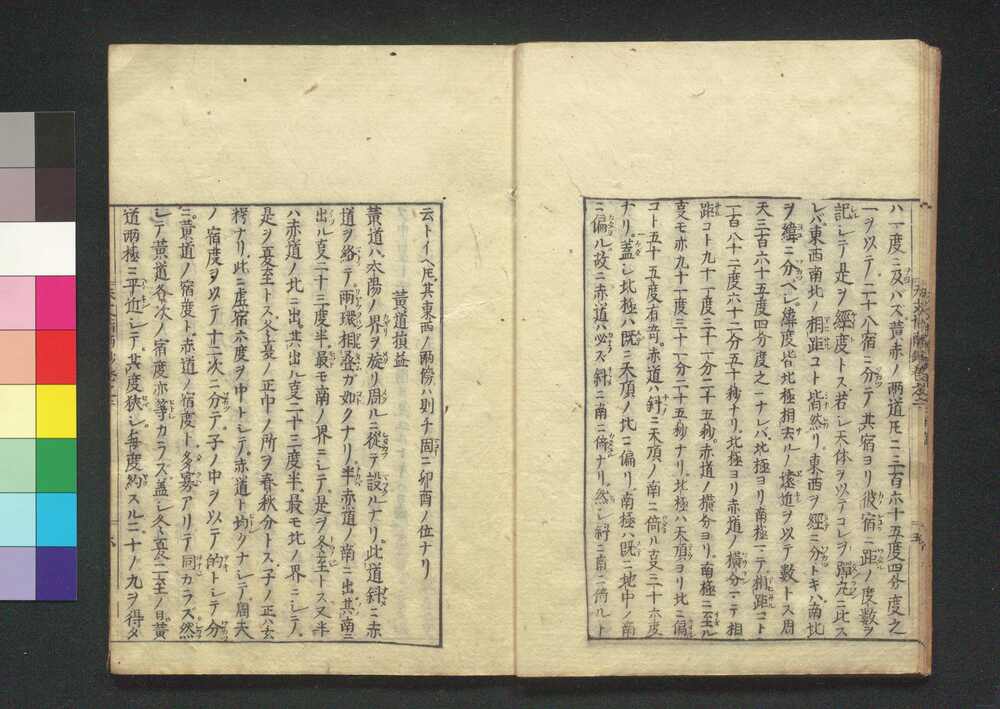 ハ一度ニ及バス黄赤ノ両道圧ニ三百六十五度四分度之
一ヲ以テノ二十八宿ニ分テ其宿ヨリ彼宿ニ距ノ度数ヲ
記レテ是ヲ經度トス若シ天体ヲ以テコレヲ ニ此ス
レバ東西南北ノ相距コト皆然リ東西ヲ經ニ分トキハ南北
ヲ緯ニ分ベレ緯度皆北極相去ルノ遠近ヲ以テ數トス周
天三百六十五度四分度之一ナレバ北極ヨリ南極ニテ相距コト
一百八十二度六十二分五十秒ナリ北極ヨリ赤道ノ横分ニテ相
距コト九十一度三十一分二十五秒赤道ノ横分ヨリ南極ニ至ル
亥モ亦九十一度三十一分二十五秒ナリ北極ハ天頂ヨリ北ニ偏
コト五十五度有奇赤道ハ斜ニ天頂ノ南ニ倚ル亥三十六度
ナリ蓋シ北極ハ既ニ天頂ノ北ニ偏リ南極ハ既ニ地中ノ南
ニ偏ル故ニ赤道ハ必ス斜ニ南ニ倚ナリ然レ斜ニ南ニ倚ルト
云トイヘ圧其東西ノ両傍ハ則チ固ニ卯酉ノ位ナリ
黄道損益
黄道ハ太陽ノ界ヲ旋リ周ルニ從テ設ルナリ此道斜ニ赤
道ヲ絡テ両環相疊ガ如クナリ半赤道ノ南ニ出其南ニ
出ル亥二十三度半最モ南ノ界ニレテ是ヲ冬至トス又半
ハ赤道ノ北ニ出其出ル亥二十三度半最モ北ノ界ニレテ
是ヲ夏至トス冬夏ノ正中ノ所ヲ春秋分トス子ノ正ハ玄
枵ナリ此ニ虚宿六度ヲ中トレテ赤道ト均クナレテ周天
ノ宿度ヲ以テ十二次ニ分テ子ノ中ヲ以テ的トレテ分
ニ黄道ノ宿度ト赤道ノ宿度ト多寡アリテ同カラズ然
レテ黄道各次ノ宿度亦等カラズ蓋シ冬夏二至ノ日黄
道両極ニ平近レテ其度狭シ毎度約スルニ十ノ九ヲ得タ